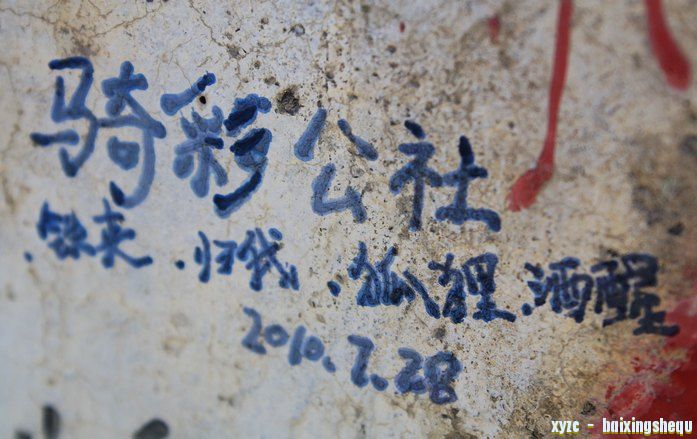 骑彩公社
.铁来.归我.狐狸.酒醒
2010.7.28
xyzc - baixingshequ